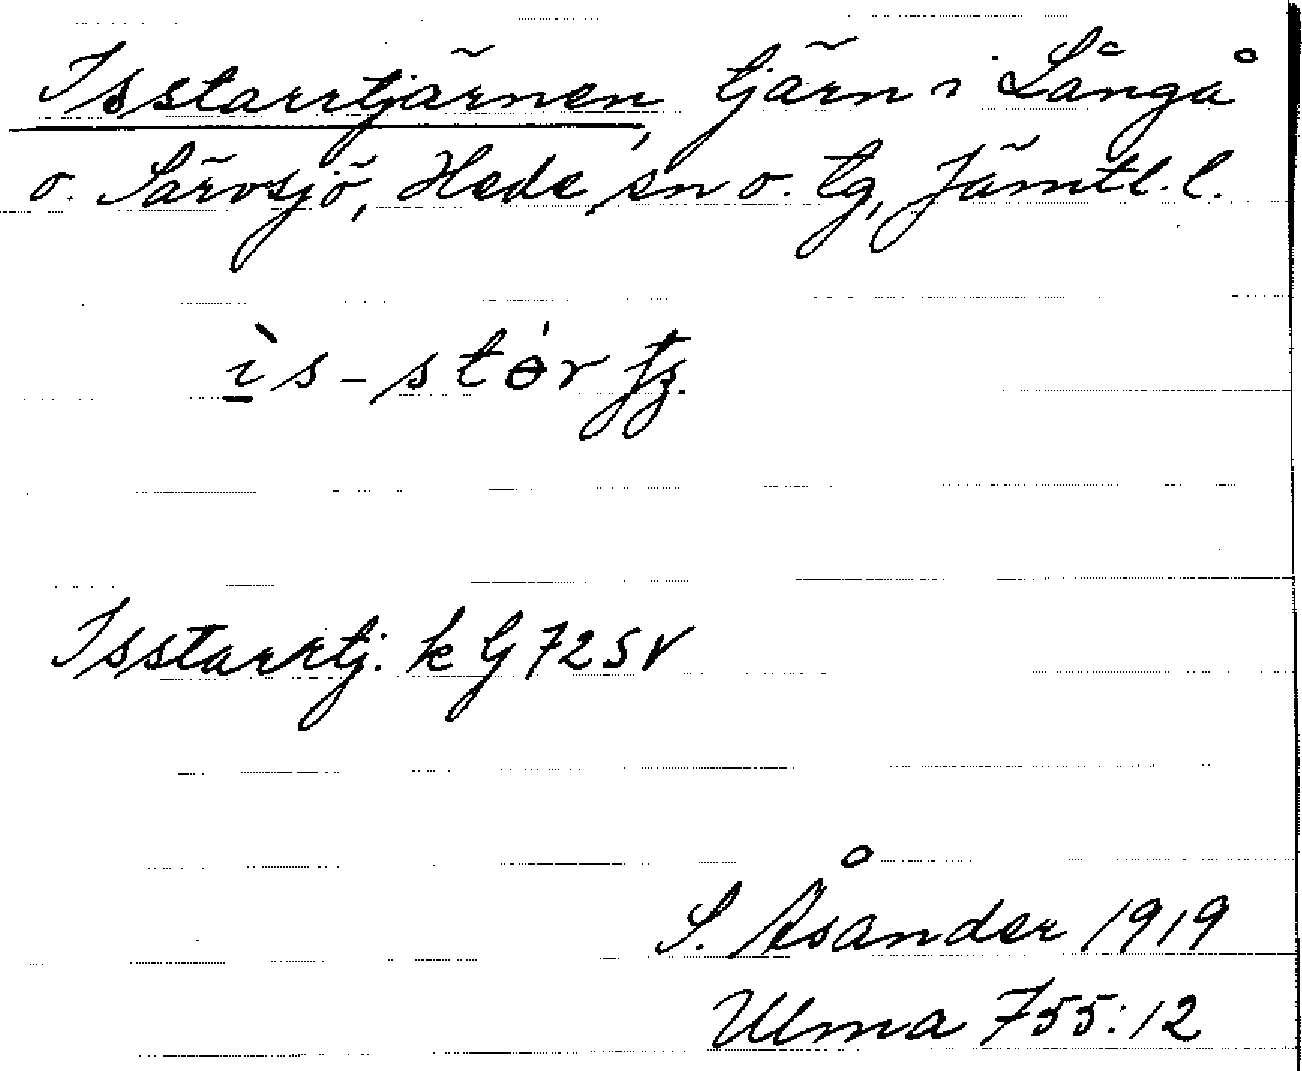 Isstarrtjärnen, tjärn i Långå
o. Särvsjö, Hede sn o. tg, Jämtl. l.
ìs-stɵ́r
Isstarrtj. k G 72 SV
S. Åsander 1919
Ulma 755:12